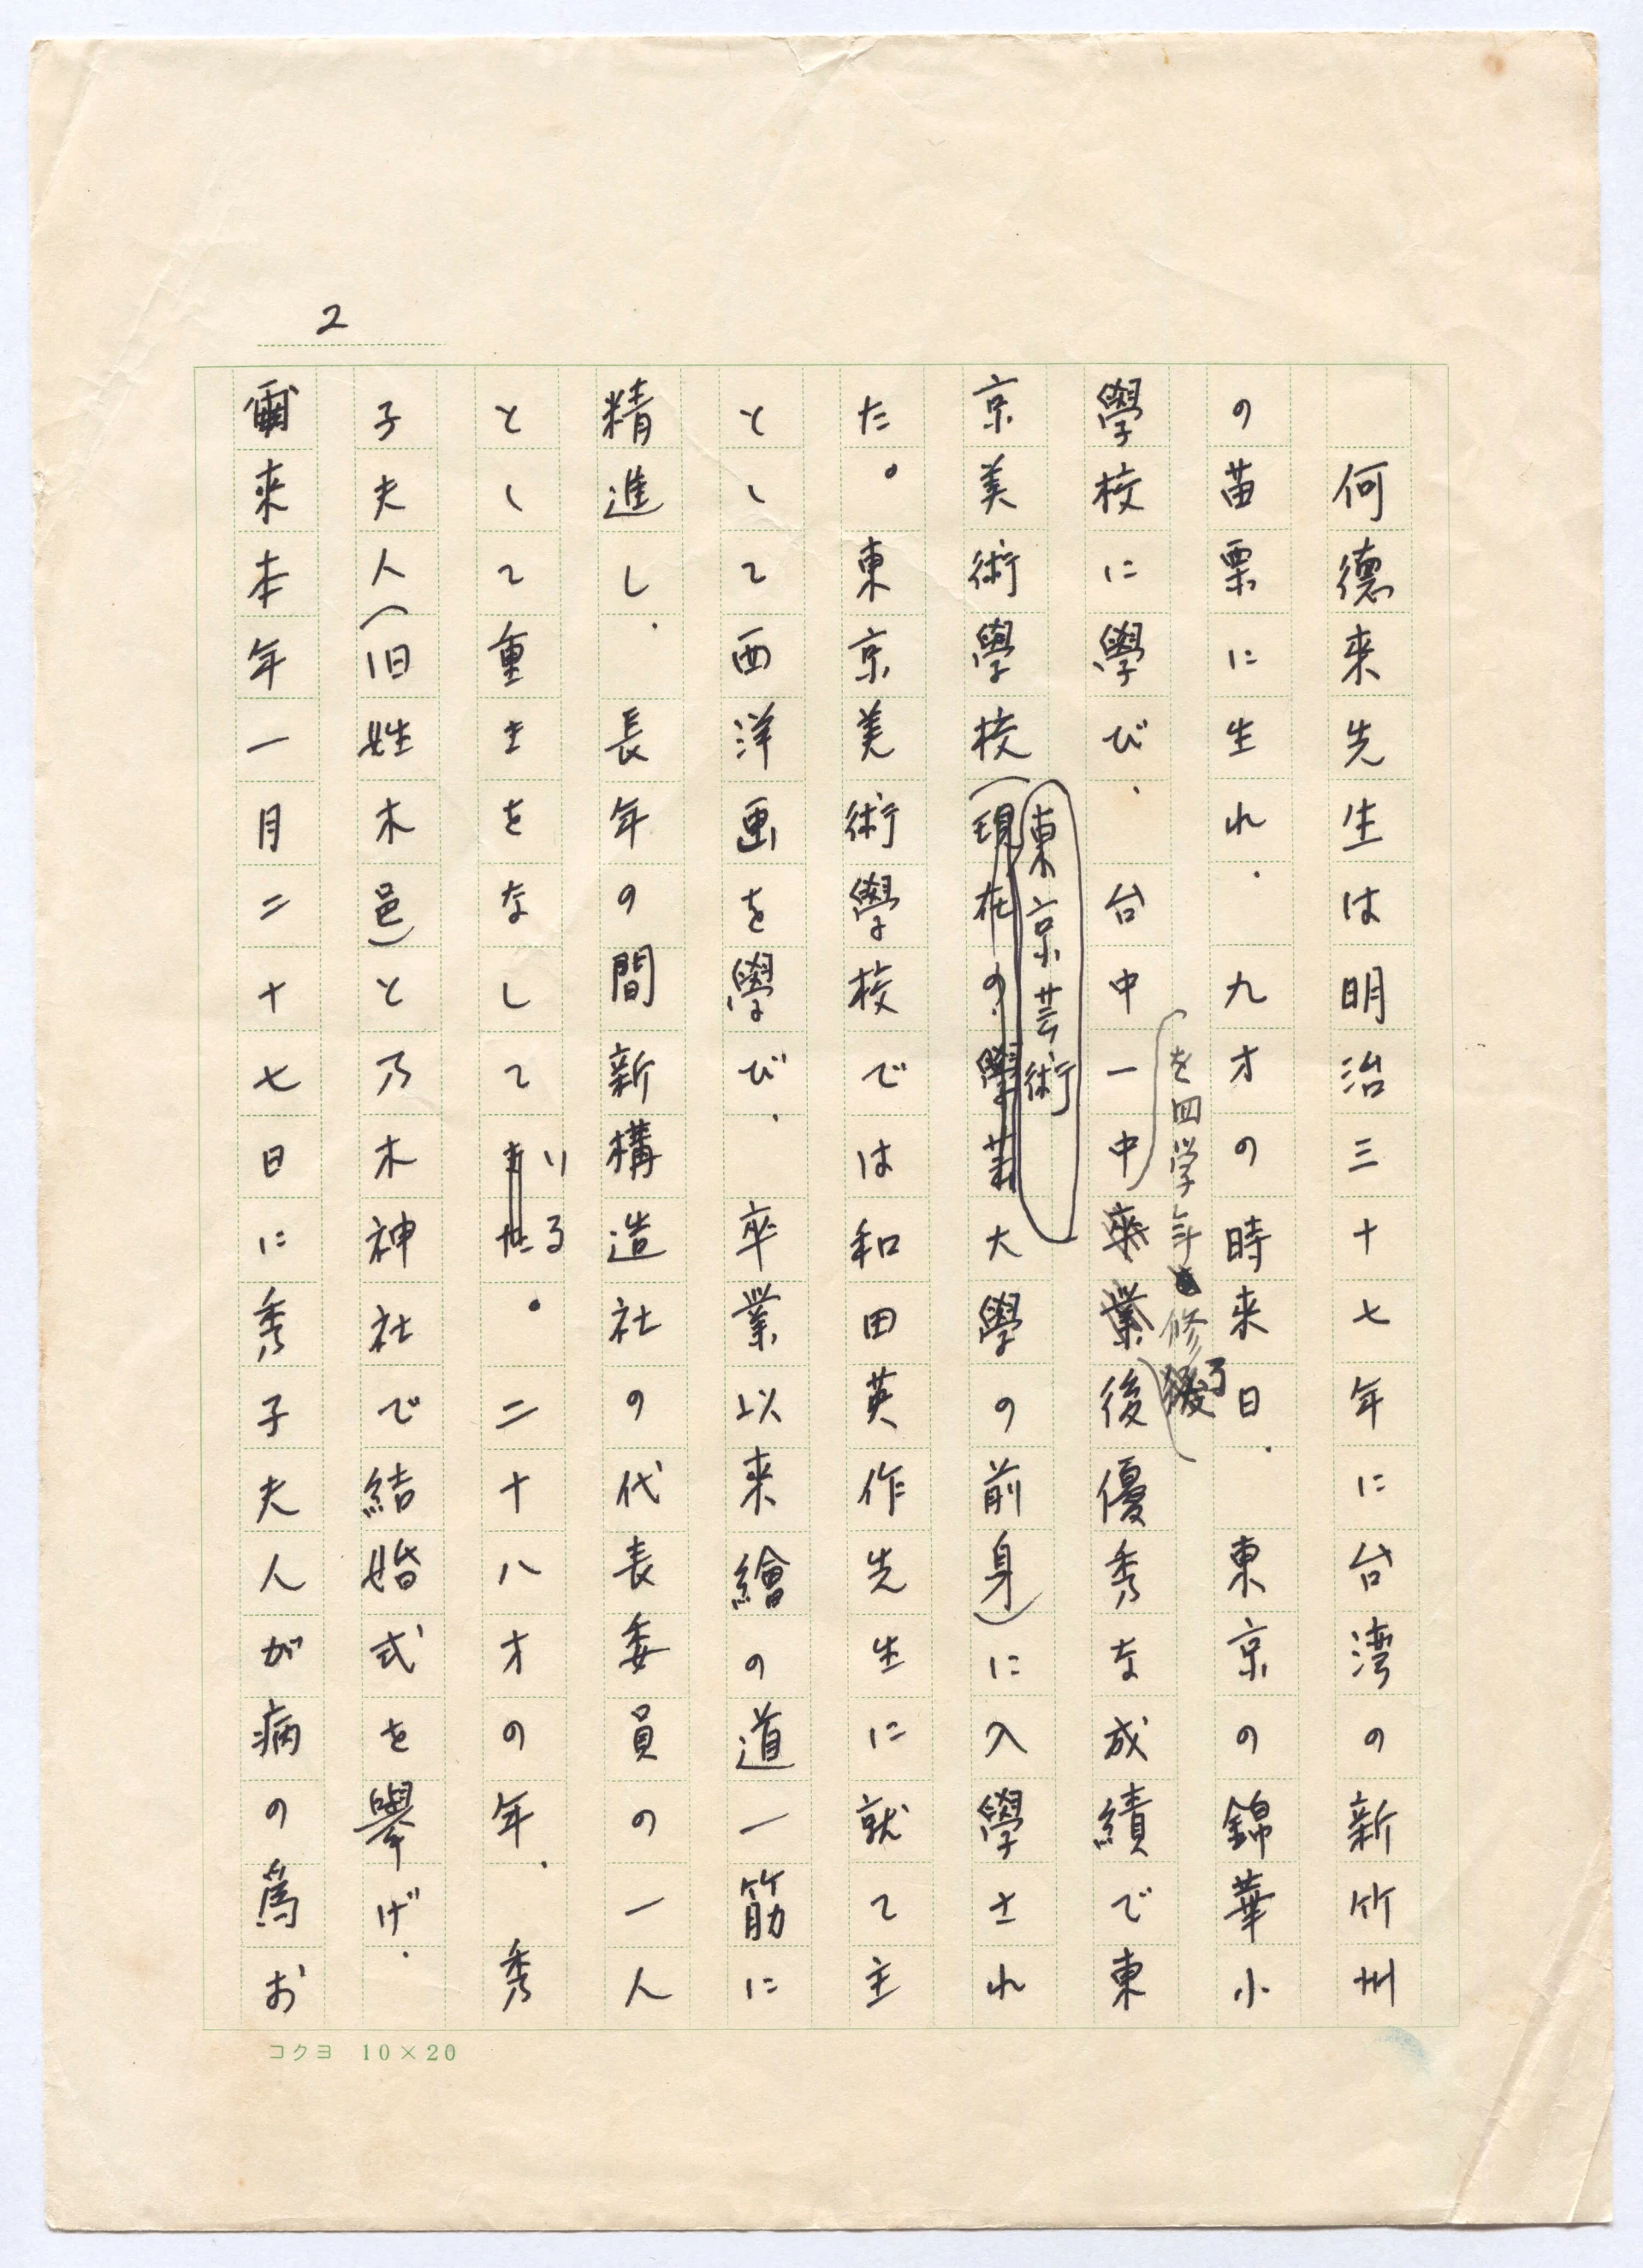 2
何德来先生は明治三十七年に台湾の新竹州
の苗栗に生れ、九才の時来日、東京の錦華小
學校に學び、台中一中卒業後優秀な成績で東
を四学年修了
京美術學校(現在の學芸大學の前身)に入學され
東京芸術
た。東京美術學校では和田英作先生に就て主
として西洋画を學び、卒業以来繪の道一筋に
精進し、長年の間新構造社の代表委員の一人
として重きをなして
いる。二十八才の年、秀
子夫人(旧姓木邑)と乃木神社で結婚式を擧げ、
爾来本年一月二十七日に秀子夫人が病の為お
コクヨ 10×20